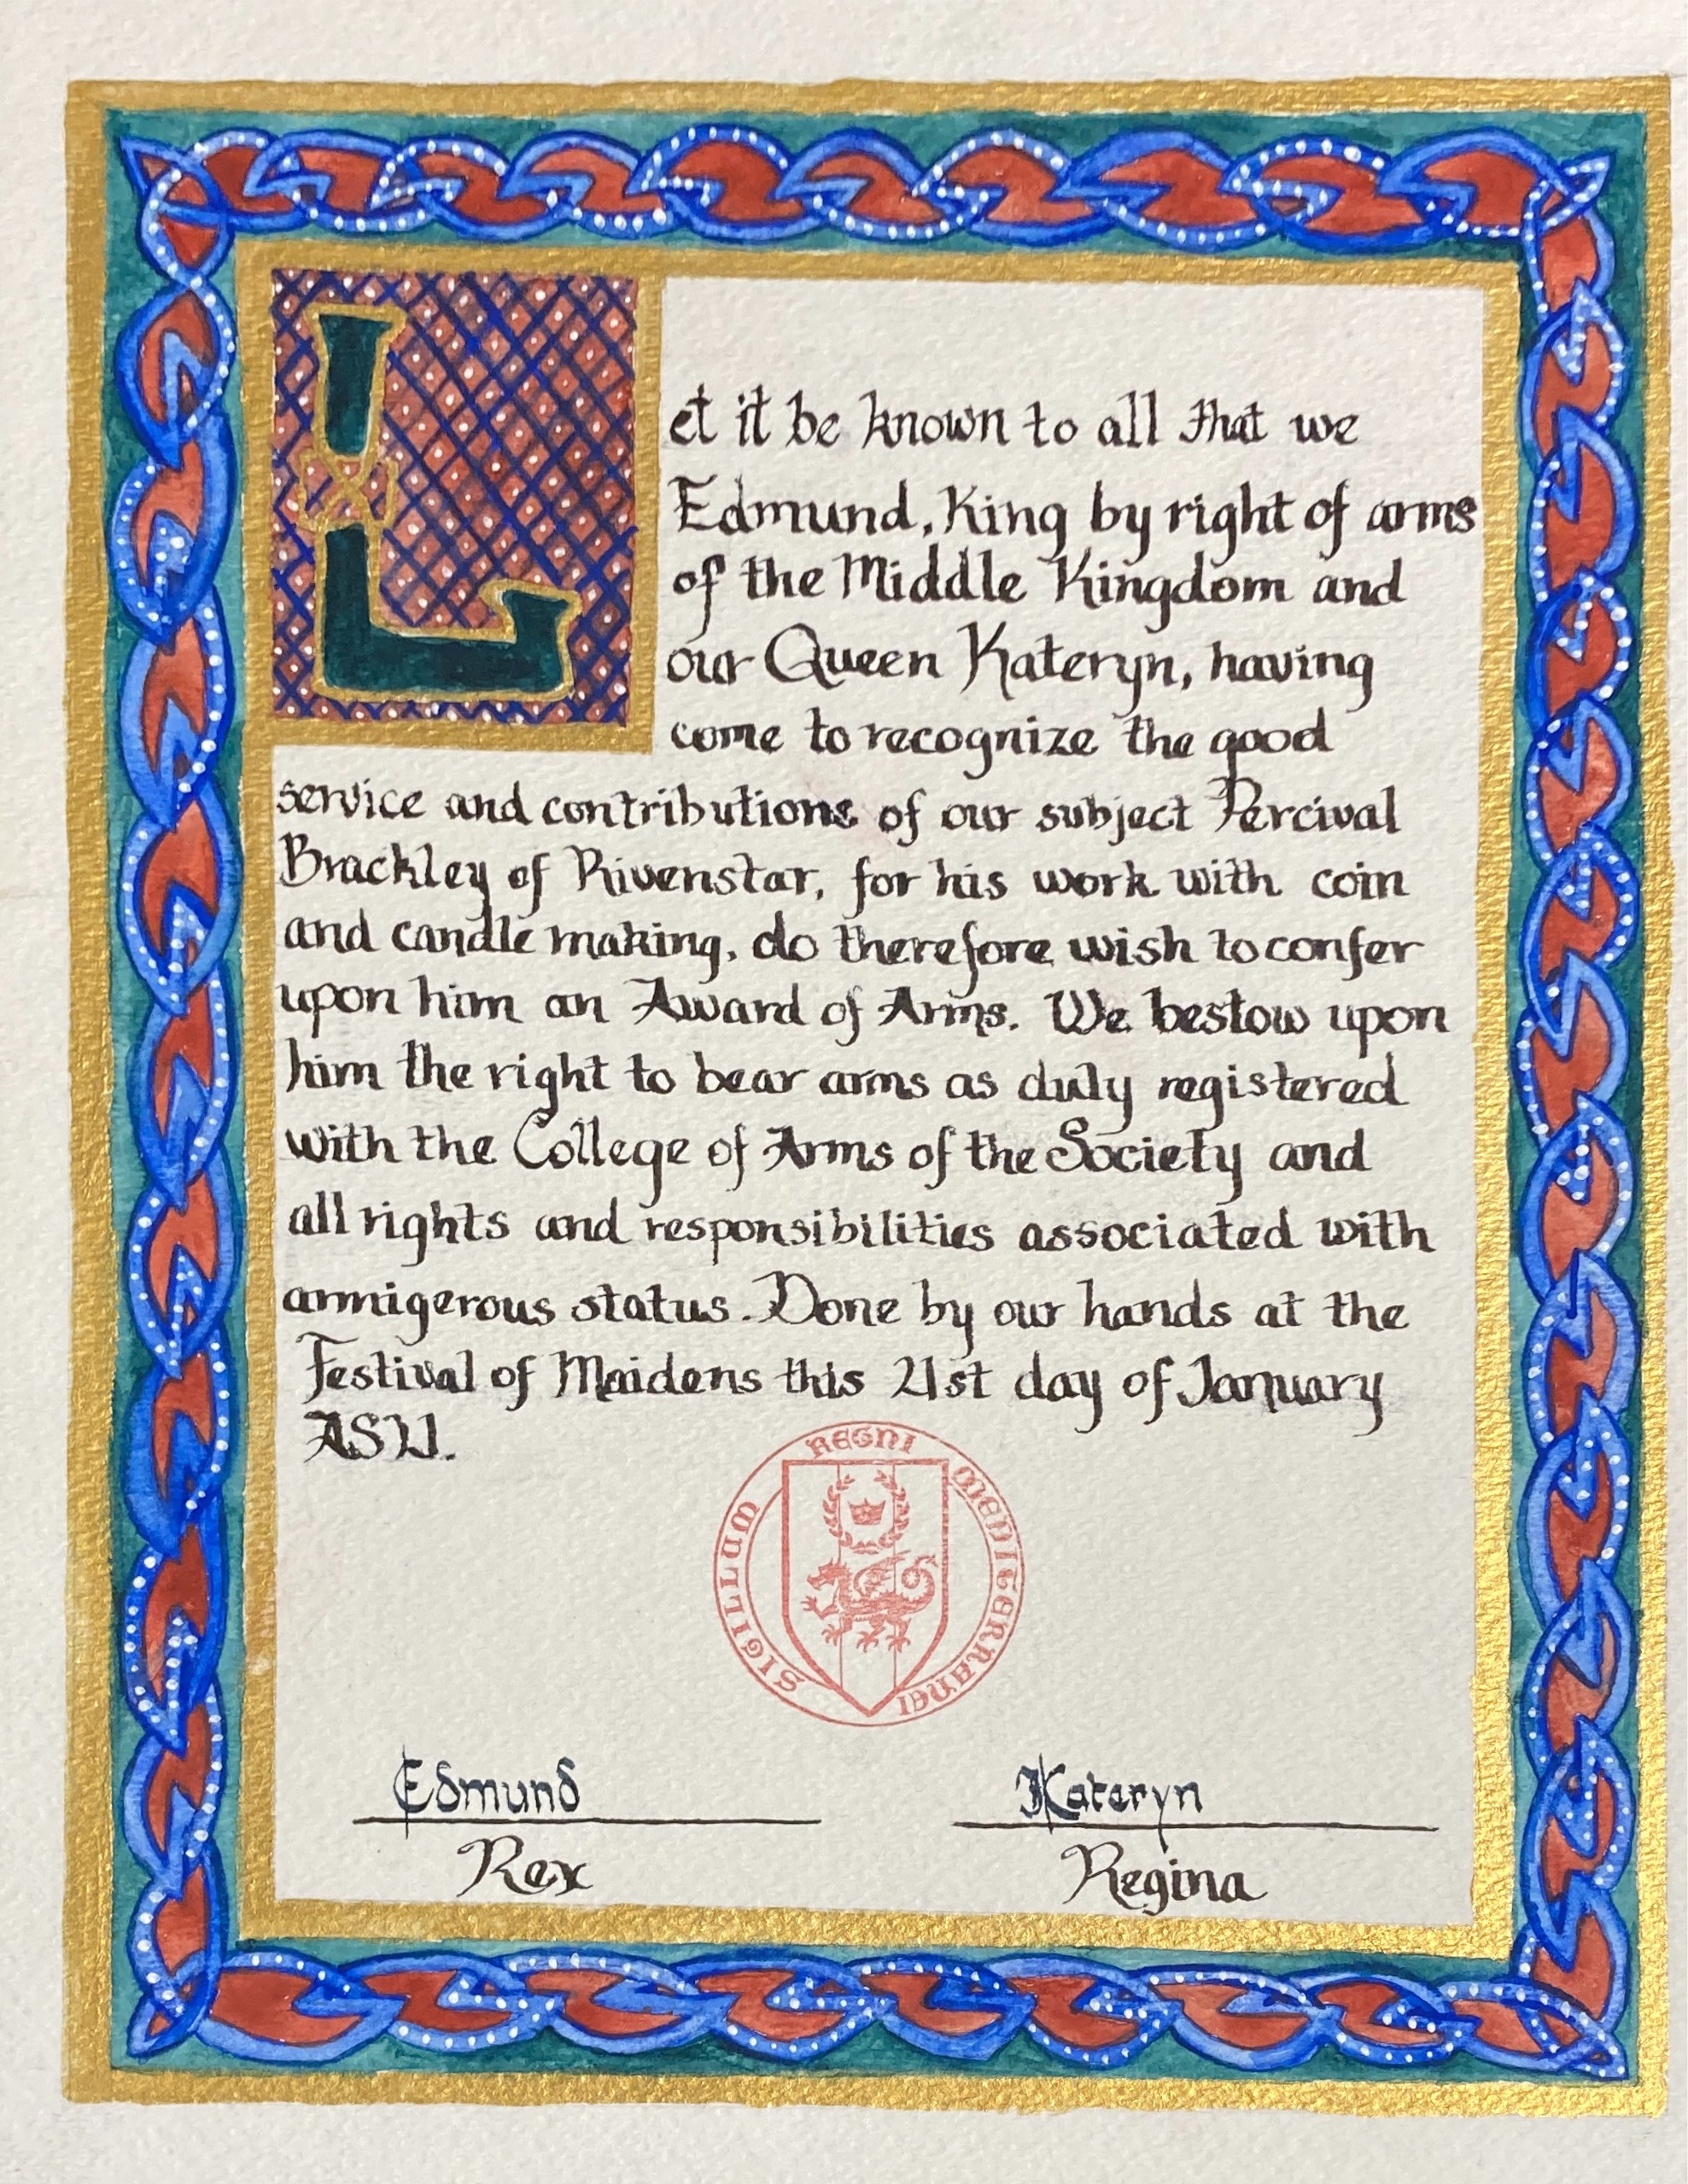 Let it be known to all that we
Edmund, King by right of arms
of the Middle Kingdom and
our Queen Kateryn, having
come to recognize the good
service and contributions of our subject Percival
Brackley of Rivenstar, for his work with coin
and candle making, do therefore wish to confer
upon him an Award of Arms. We bestow upon
him the right to bear arms as duly registered
with the College of Arms of the Society and
all rights and responsibilities associated with
armigerous status. Done by our hands at the
Festival of Maidens this 21st day of January
SIGILLUM REGNI MEDITERRANEI
Edmund Kateryn
Rex Regina